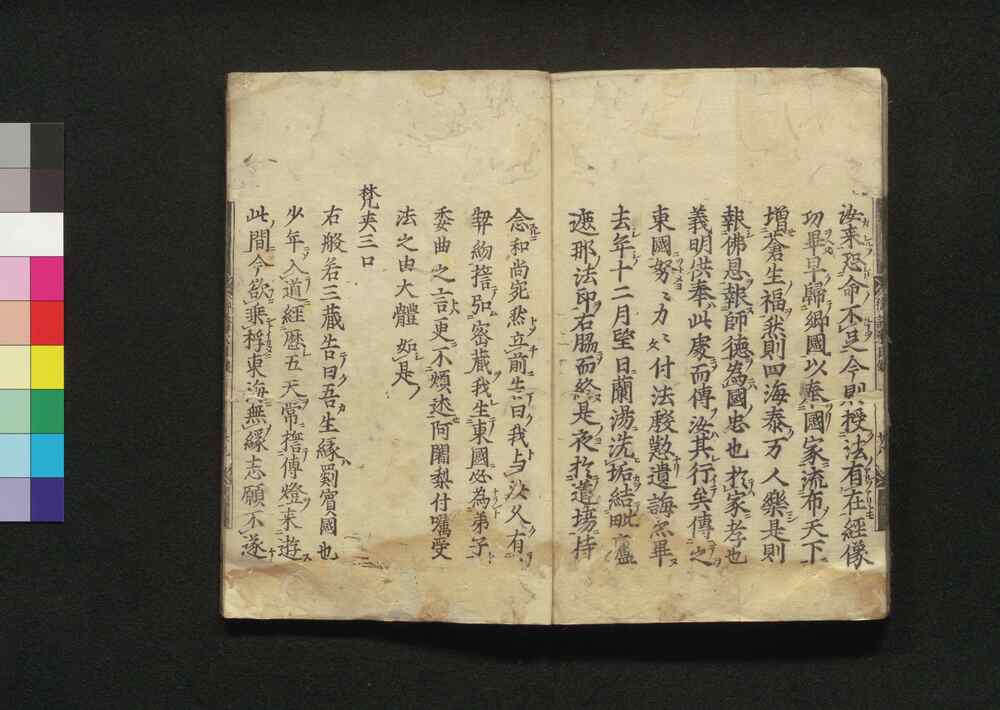 汝来恐命不足今則授法有在經像
功畢早歸郷國以奉國家流布天下
増蒼生福然則四海泰万人樂是則
報佛恩報師德為國忠也於家孝也
義明供奉此處而傳汝其行矣傳之
東國努〻力〻付法慇懃遺誨亦畢
去年十二月望日蘭湯洗垢結毗盧
遮那法印右脇而終是夜於道場持
念和尚宛然立前告曰我与汝久有
契約誓弘密藏我生東國必為弟子
委曲之言更不煩述阿闍梨付囑受
法之由大體如是
梵夾三口
右般若三藏告曰吾生縁罽賓國也
少年入道經歴五天常擔傳燈来遊
此間今欲乘桴東海無縁志願不遂